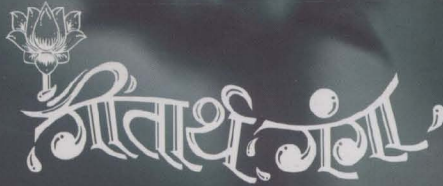 गीतार्थ गंगा